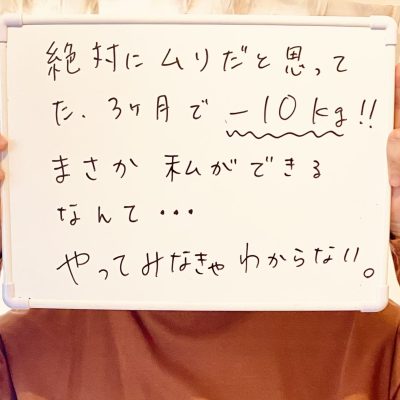 絶対にムリだと思って
た。3ヶ月で －10kg!!
まさか 私ができる
なんて・・・
やってみなきゃ わからない。